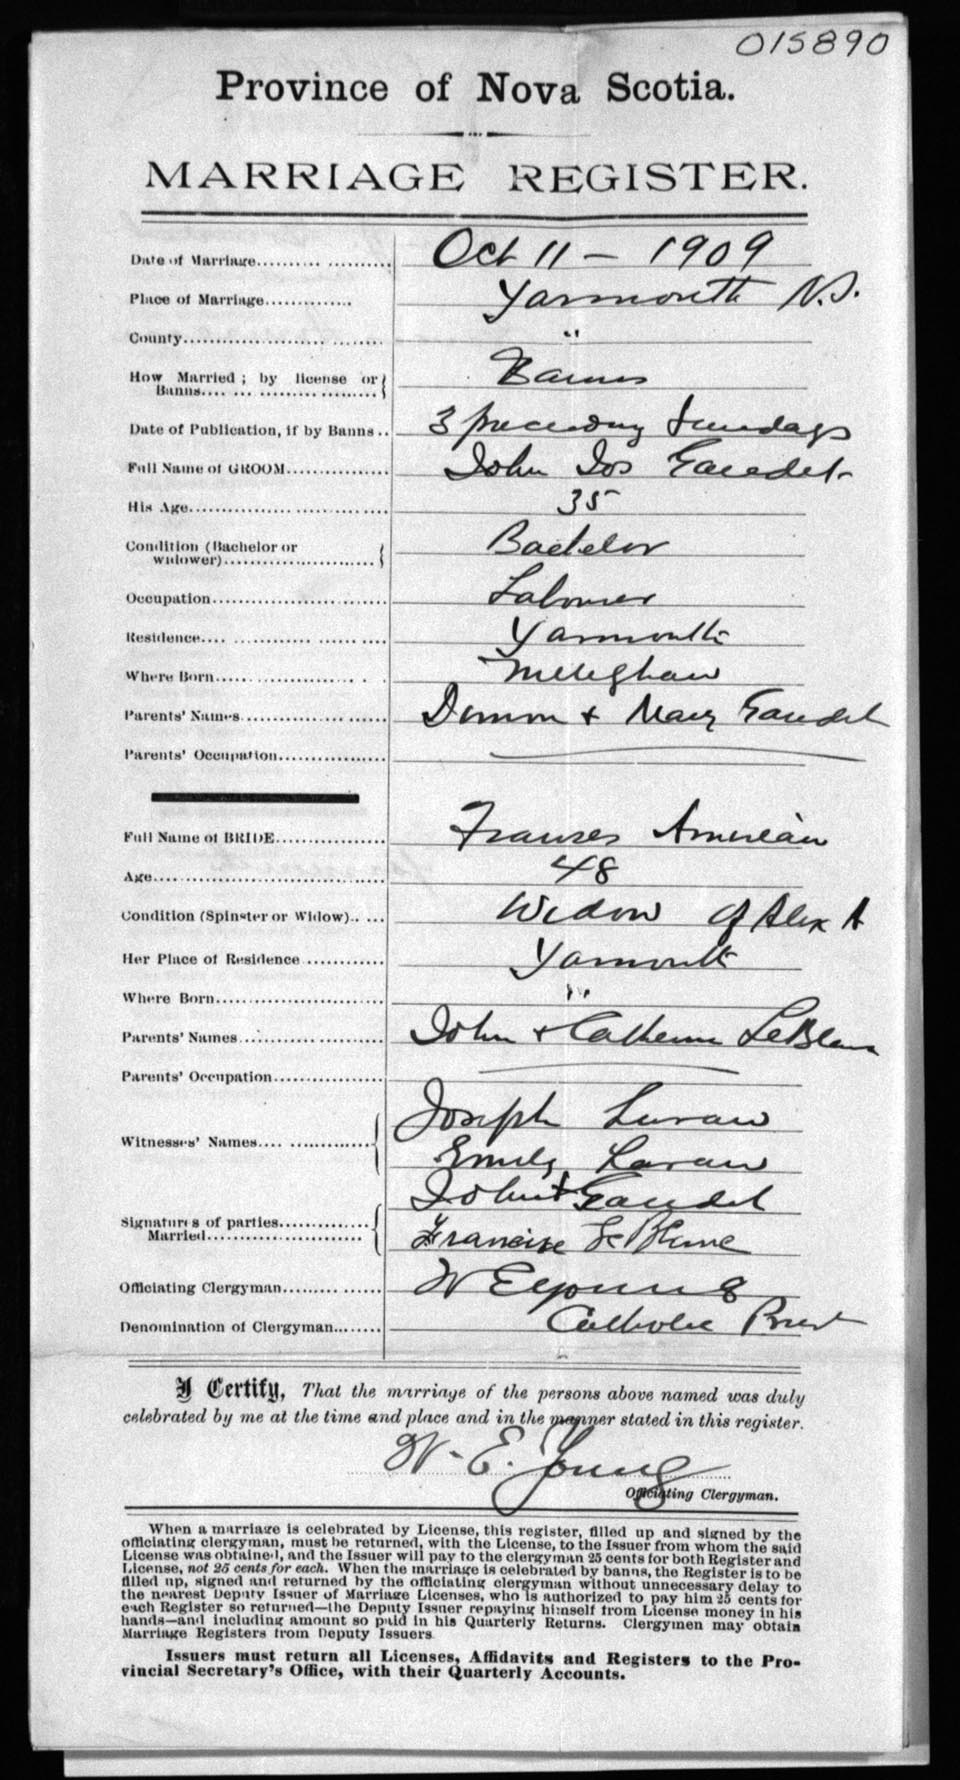 015890
Province of Nova Scotia.
MARRIAGE REGISTER.
Date of Marriage Oct 11 – 1909
Place of Marriage Yarmouth N.S.
County "
How Married; by license or Banns Banns
Date of Publication, if by Banns 3 preceding Sundays
Full Name of GROOM John Jos Gaudet
His Age 35
Condition (Bachelor or widower) Bachelor
Occupation Labourer
Residence Yarmouth
Where Born Meteghan
Parents' Names & Mary Gaudet
Parents' Occupation
Full Name of BRIDE Frances
Age 48
Condition (Spinster or Widow) Widow of Alex A
Her Place of Residence Yarmouth
Where Born "
Parents' Names John & Catherine LeBlanc
Parents' Occupation
Witnesses' Names Joseph
Emily
Signatures of parties Married John Gaudet
LeBlanc
Officiating Clergyman W E Young
Denomination of Clergyman Catholic Priest
I Certify, That the marriage of the persons above named was duly
celebrated by me at the time and place and in the manner stated in this register.
W. E. Young
Officiating Clergyman.
When a marriage is celebrated by License, this register, filled up and signed by the
officiating clergyman, must be returned, with the License, to the Issuer from whom the said
License was obtained, and the Issuer will pay to the clergyman 25 cents for both Register and
License, not 25 cents for each. When the marriage is celebrated by banns, the Register is to be
filled up, signed and returned by the officiating clergyman without unnecessary delay to
the nearest Deputy Issuer of Marriage Licenses, who is authorized to pay him 25 cents for
each Register so returned—the Deputy Issuer repaying himself from License money in his
hands—and including amount so paid in his Quarterly Returns. Clergymen may obtain
Marriage Registers from Deputy Issuers
Issuers must return all Licenses, Affidavits and Registers to the Pro-
vincial Secretary's Office, with their Quarterly Accounts.